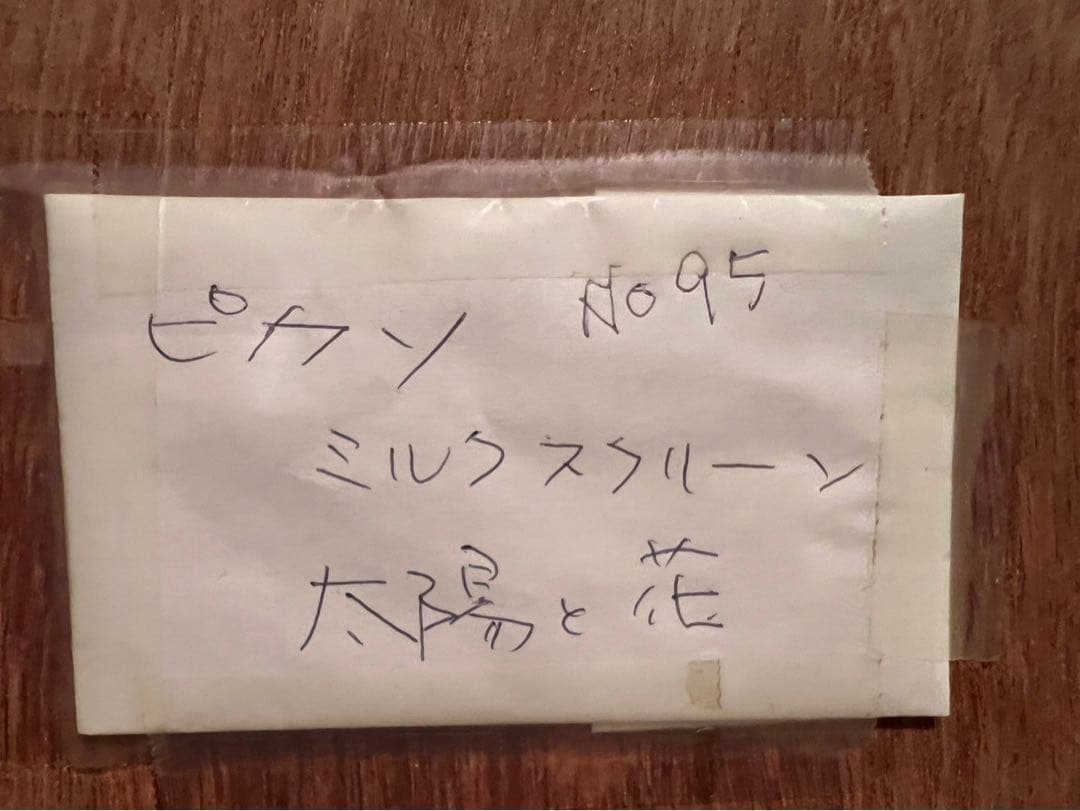 ピカソ No 95
ミルクスクリーン
太陽と花